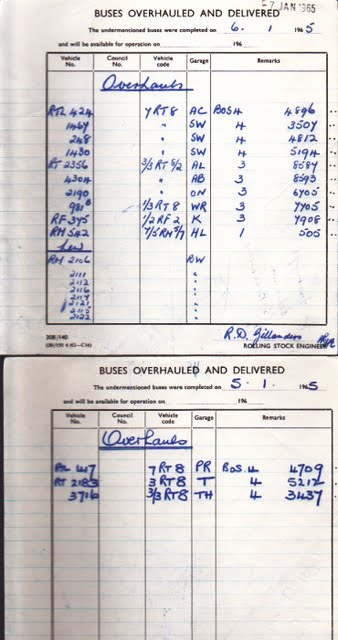 BUSES OVERHAULED AND DELIVERED
7 JAN 1965
The undermentioned buses were completed on 6. 1 1965
and will be available for operation on 196
Vehicle No. Council No. Vehicle code Garage Remarks
Overhauls
RTL 424 7RT8 AC BOS 4 4896
1467 " SW 4 3507
248 " SW 4 4812
1430 " SW 4 5194
RT 2356 3/3 RT 8/2 AL 3 8587
4304 " AB 3 8593
2190 " ON 3 6705
981 1/3 RT8 WR 3 7705
RF 375 1/2 RF 2 K 3 7908
RM 542 HL 1 505
New
RM 2106 RW
2111 "
2112 "
2116 "
2117 "
2121 "
2115 "
2122 "
308/140
R.D. Gillanders
ROLLING STOCK ENGINEER
BUSES OVERHAULED AND DELIVERED
The undermentioned buses were completed on 5. 1. 1965
and will be available for operation on 196
Vehicle No. Council No. Vehicle code Garage Remarks
Overhauls
RTL 447 7RT8 PR BOS. 4 4709
RT 2183 3RT8 T 4 5212
3716 3/3 RT8 TH 4 3437